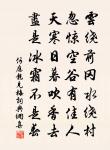 雲繞前岡水繞村
忽驚空谷有佳人
天寒日暮吹香去
盡是冰霜不是春
何應龍見梅詞典網